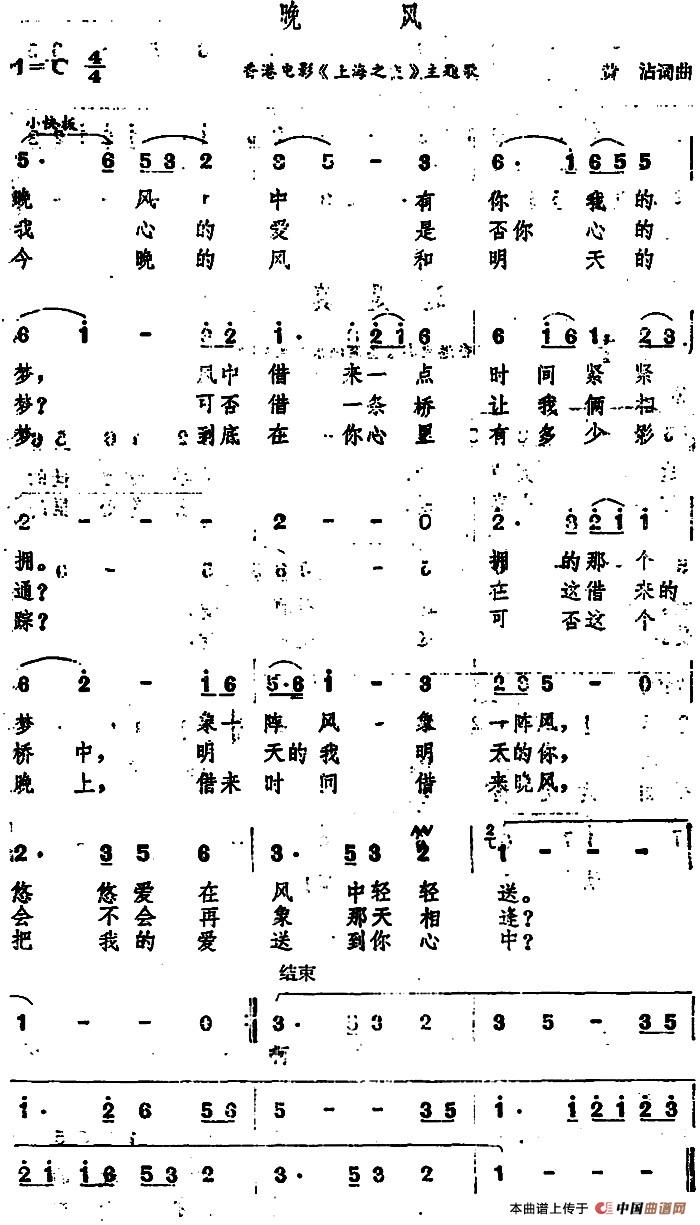 晚 风
1=C 4/4 香港电影《上海之夜》主题歌 黄 沾词曲
小快板
5· 6 5 3 2 3 5 - 3 6· 1 6 5 5
晚 风 中 有 你 我的
我 心的 爱 是 否你 心的
今 晚的 风 和 明 天的
6 1 - 2 1· 6 2 1 6 6 1 6 1 2 3
梦, 风中 借 来一点 时 间 紧 紧
梦? 可否 借 一条 桥 让 我 俩 相
梦 到底 在 你心 里 有 多 少 影
2 - - - 2 - - 0 2· 3 2 1 1
拥。 拥 的那 个
通? 在 这借 来的
踪? 可 否这 个
6 2 - 1 6 5·6 1 - 3 2 3 5 - 0
梦 象一 阵 风 象 一阵 风,
桥 中, 明 天的我 明 天的你,
晚 上, 借来 时 间 借 来晚风,
2· 3 5 6 3· 5 3 2 1 - -
悠 悠 爱 在 风 中轻 轻 送。
会 不 会 再 象 那天 相 逢?
把 我 的 爱 送 到你 心 中?
结束
1 - - 0 3· 5 3 2 3 5 - 3 5
啊
1· 2 6 5 6 5 - - 3 5 1· 1 2 1 2 3
2 1 1 6 5 3 2 3· 5 3 2 1 - - -
本曲谱上传于 中国曲谱网